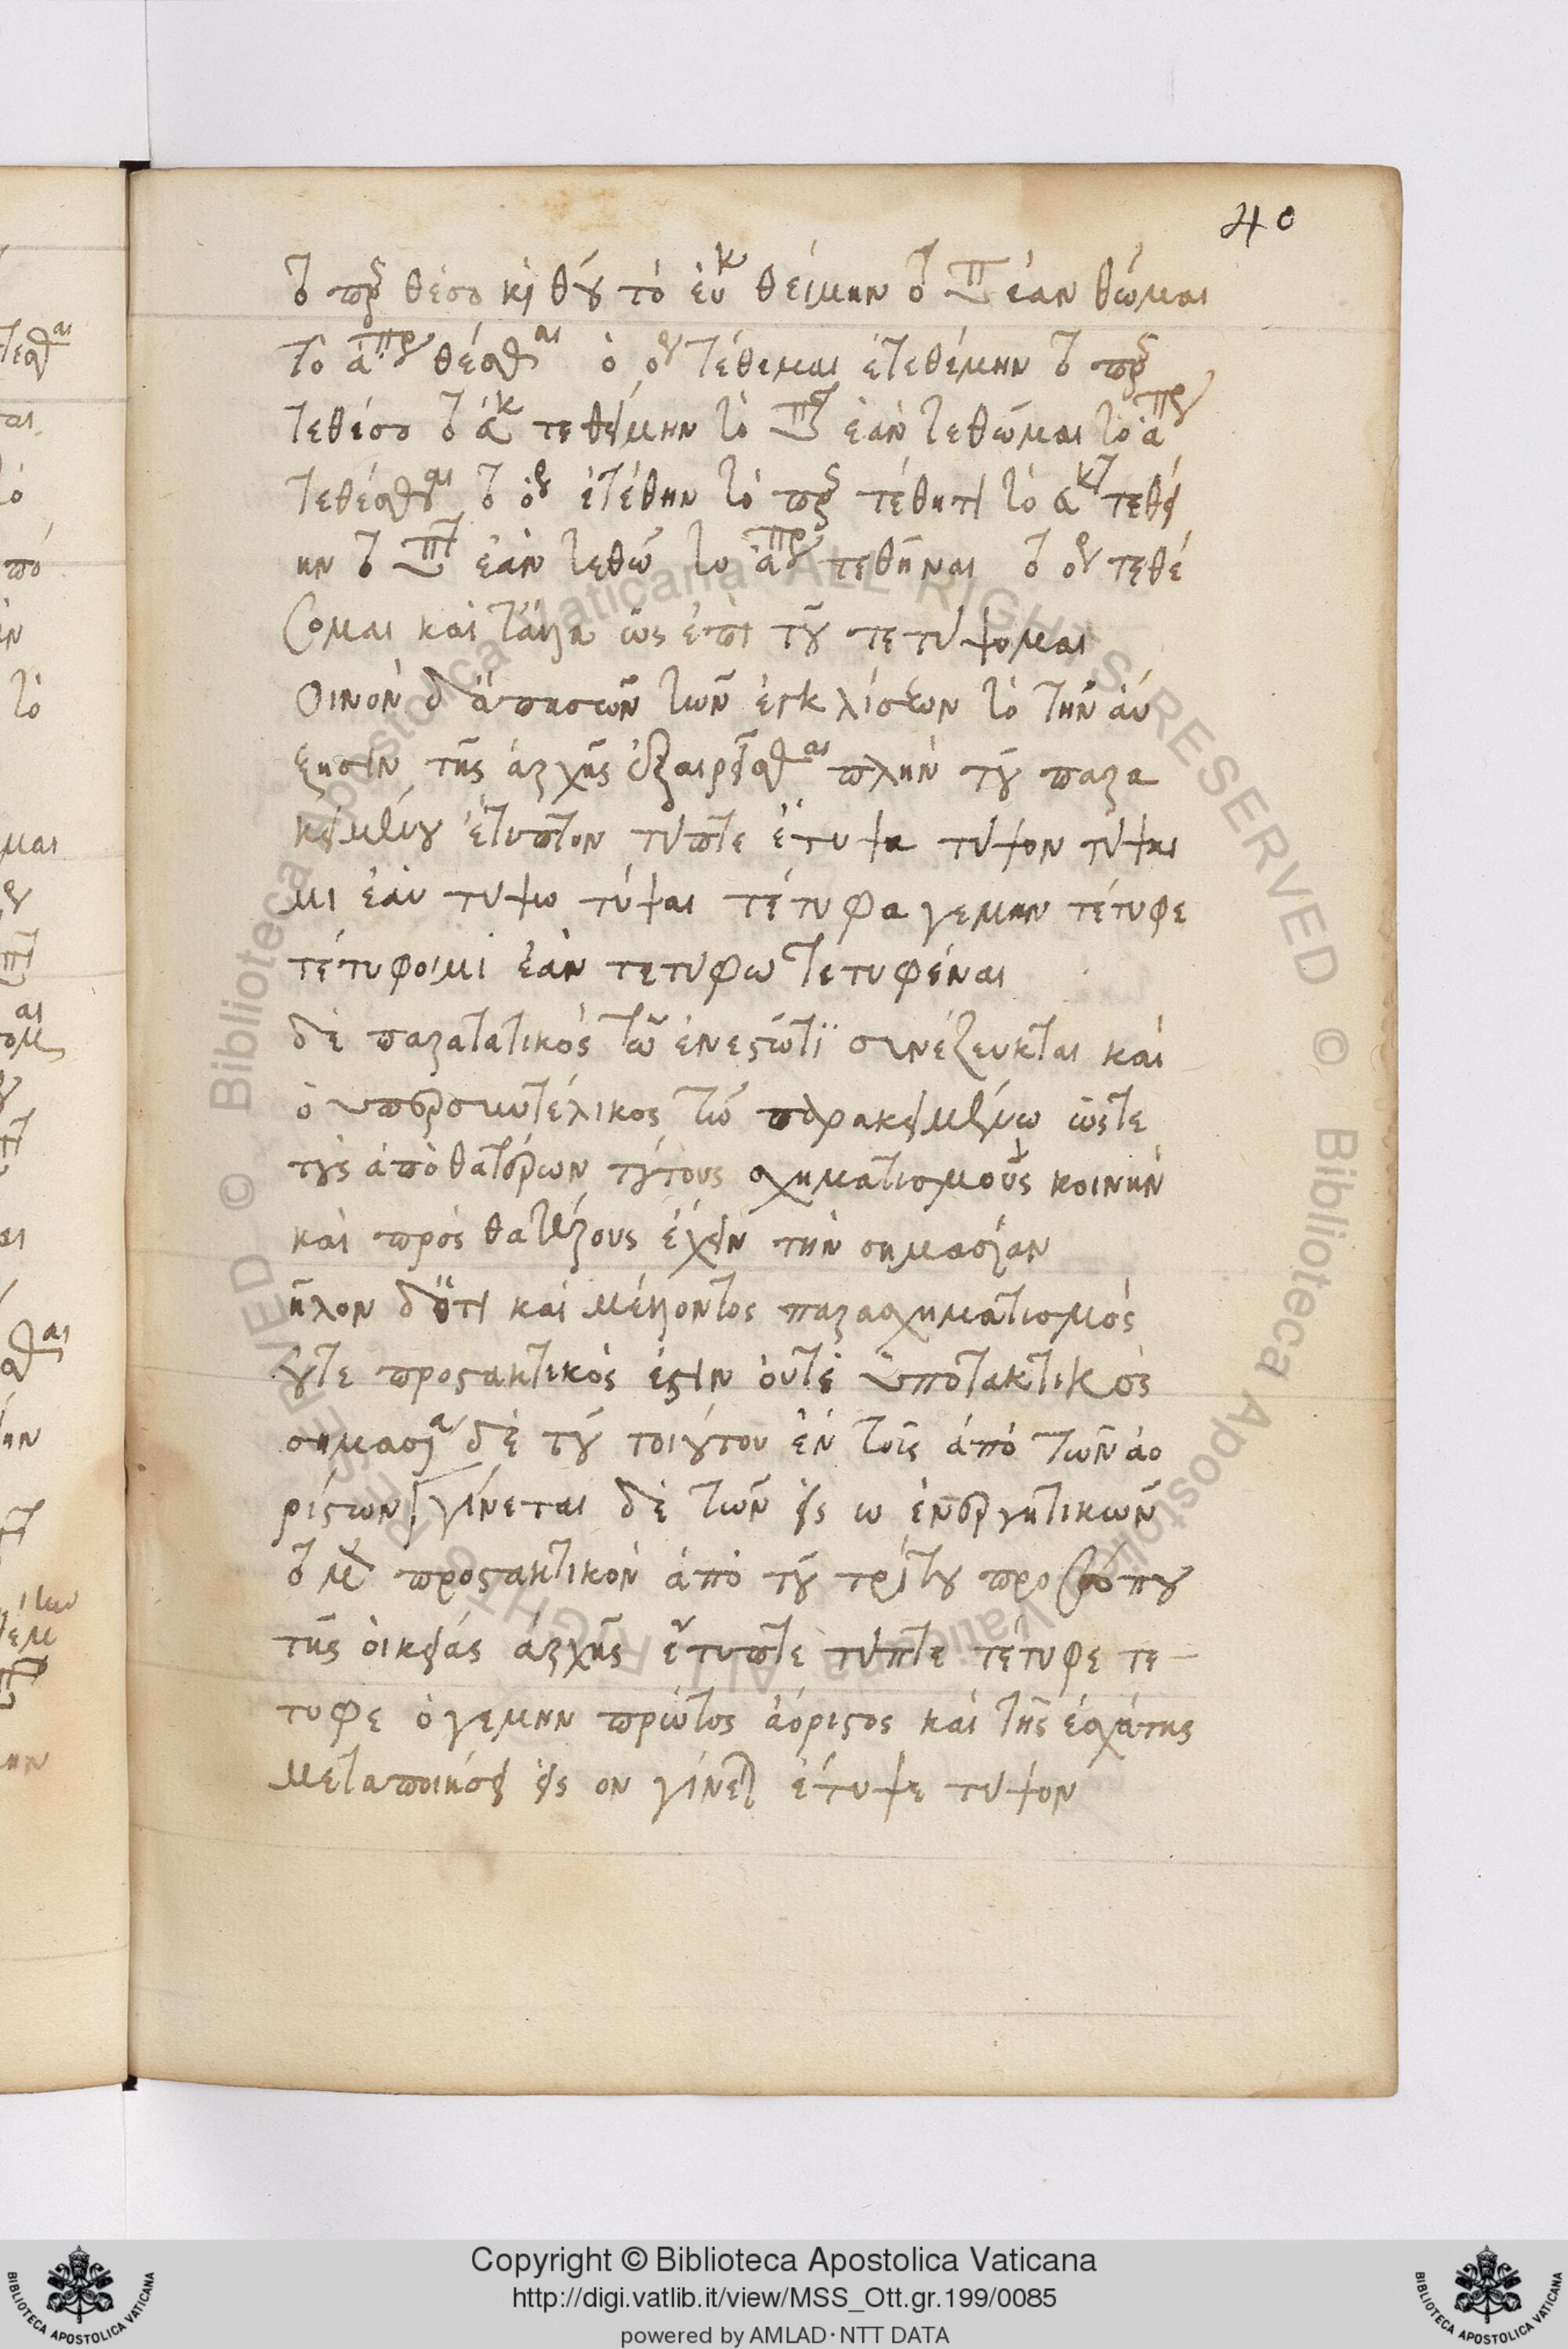 40
τὸ πρς θέσο κὶ θοῦ τὸ εὐκ θείμην τὸ ὑπτ ἐὰν θῶμαι
τὸ ἀπρ θέσθαι ὁ οὗ τέθειμαι ἐτεθέμην τὸ πρς
τεθέσο τὸ εὐκ τεθείμην τὸ ὑπτ ἐὰν τεθῶμαι τὸ ἀπρ
τεθέσθαι τὸ οὗ ἐτέθην τὸ πρς τέθητι τὸ εὐκτ τεθεί
ην τὸ ὑπτ ἐὰν τεθῶ το ἀπρ τεθῆναι τὸ οὗ τεθέ
σομαι καὶ τἄλλα ὡς ἐπὶ τοῦ τετύψομαι
οινὸν δ ἁπασῶν τῶν ἐγκλίσεων τὸ τὴν αὔ
ξησιν τῆς ἀρχῆς ἐξαιρεῖσθαι πλὴν τοῦ παρα
κειμένου ἔτυπτον τύπτε ἔτυψα τύψον τύψαι
μι ἐὰν τυψω τύψαι τέτυφα γεμην τέτυφε
τέτυφοιμι ἐὰν τετύφω τετυφέναι
δὲ παρατατικὸς τῶ ἐνεστῶτϊ συνέζευκται καὶ
ὁ ὑπερσυντέλικος τῶ παρακειμένω ὥστε
τοὺς ἀπὸ θατέρων τούτους σχηματισμοὺς κοινὴν
καὶ πρὸς θατέρους ἔχειν τὴν σημασίαν
ῆλον δ ὅτι καὶ μέλλοντος παρασχηματισμὸς
οὔτε προστακτικός ἐστιν ὀυτὲ ὑποτακτικὸς
σημασία δὲ τοῦ τοιούτου ἐν τοῖς ἀπὸ τῶν ἀο
ρίστων γίνεται δὲ τῶν εἰς ω ἐνεργητικῶν
τὸ μὲν προστακτικὸν ἀπὸ τοῦ τρίτου προσώπου
τῆς ὀικείας ἀρχῆς ἔτυπτε τύπτε τέτυφε τε
τυφε ὁ γεμην πρῶτος ἀόριστος καὶ τῆς ἐσχάτης
μεταποιήσει εἰς ον γίνεται ἔτυψε τυψον
Copyright © Biblioteca Apostolica Vaticana
http://digi.vatlib.it/view/MSS_Ott.gr.199/0085
powered by AMLAD·NTT DATA